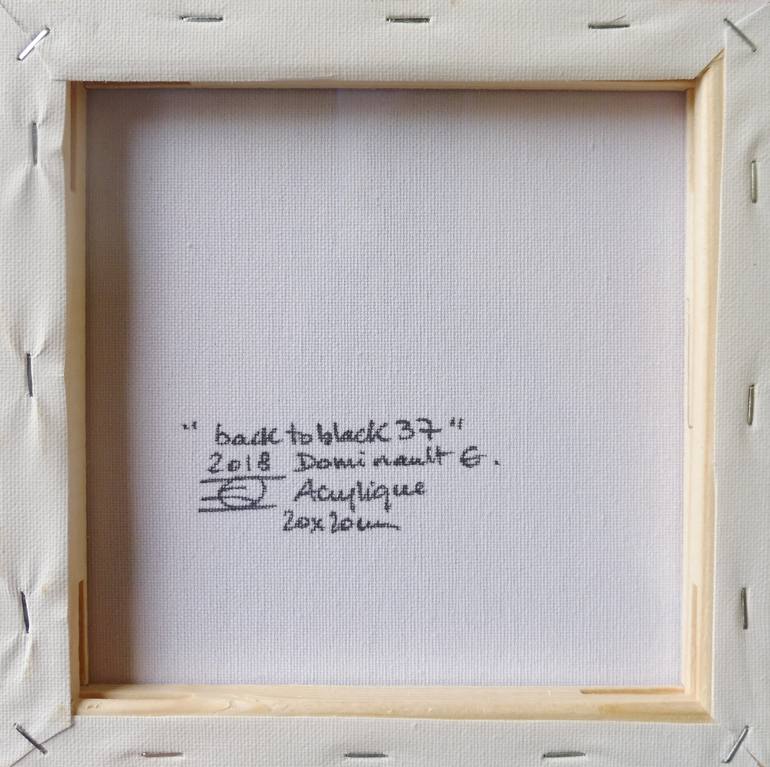 " back to black 37 "
2018 Dominault E.
Acrylique
20x20cm